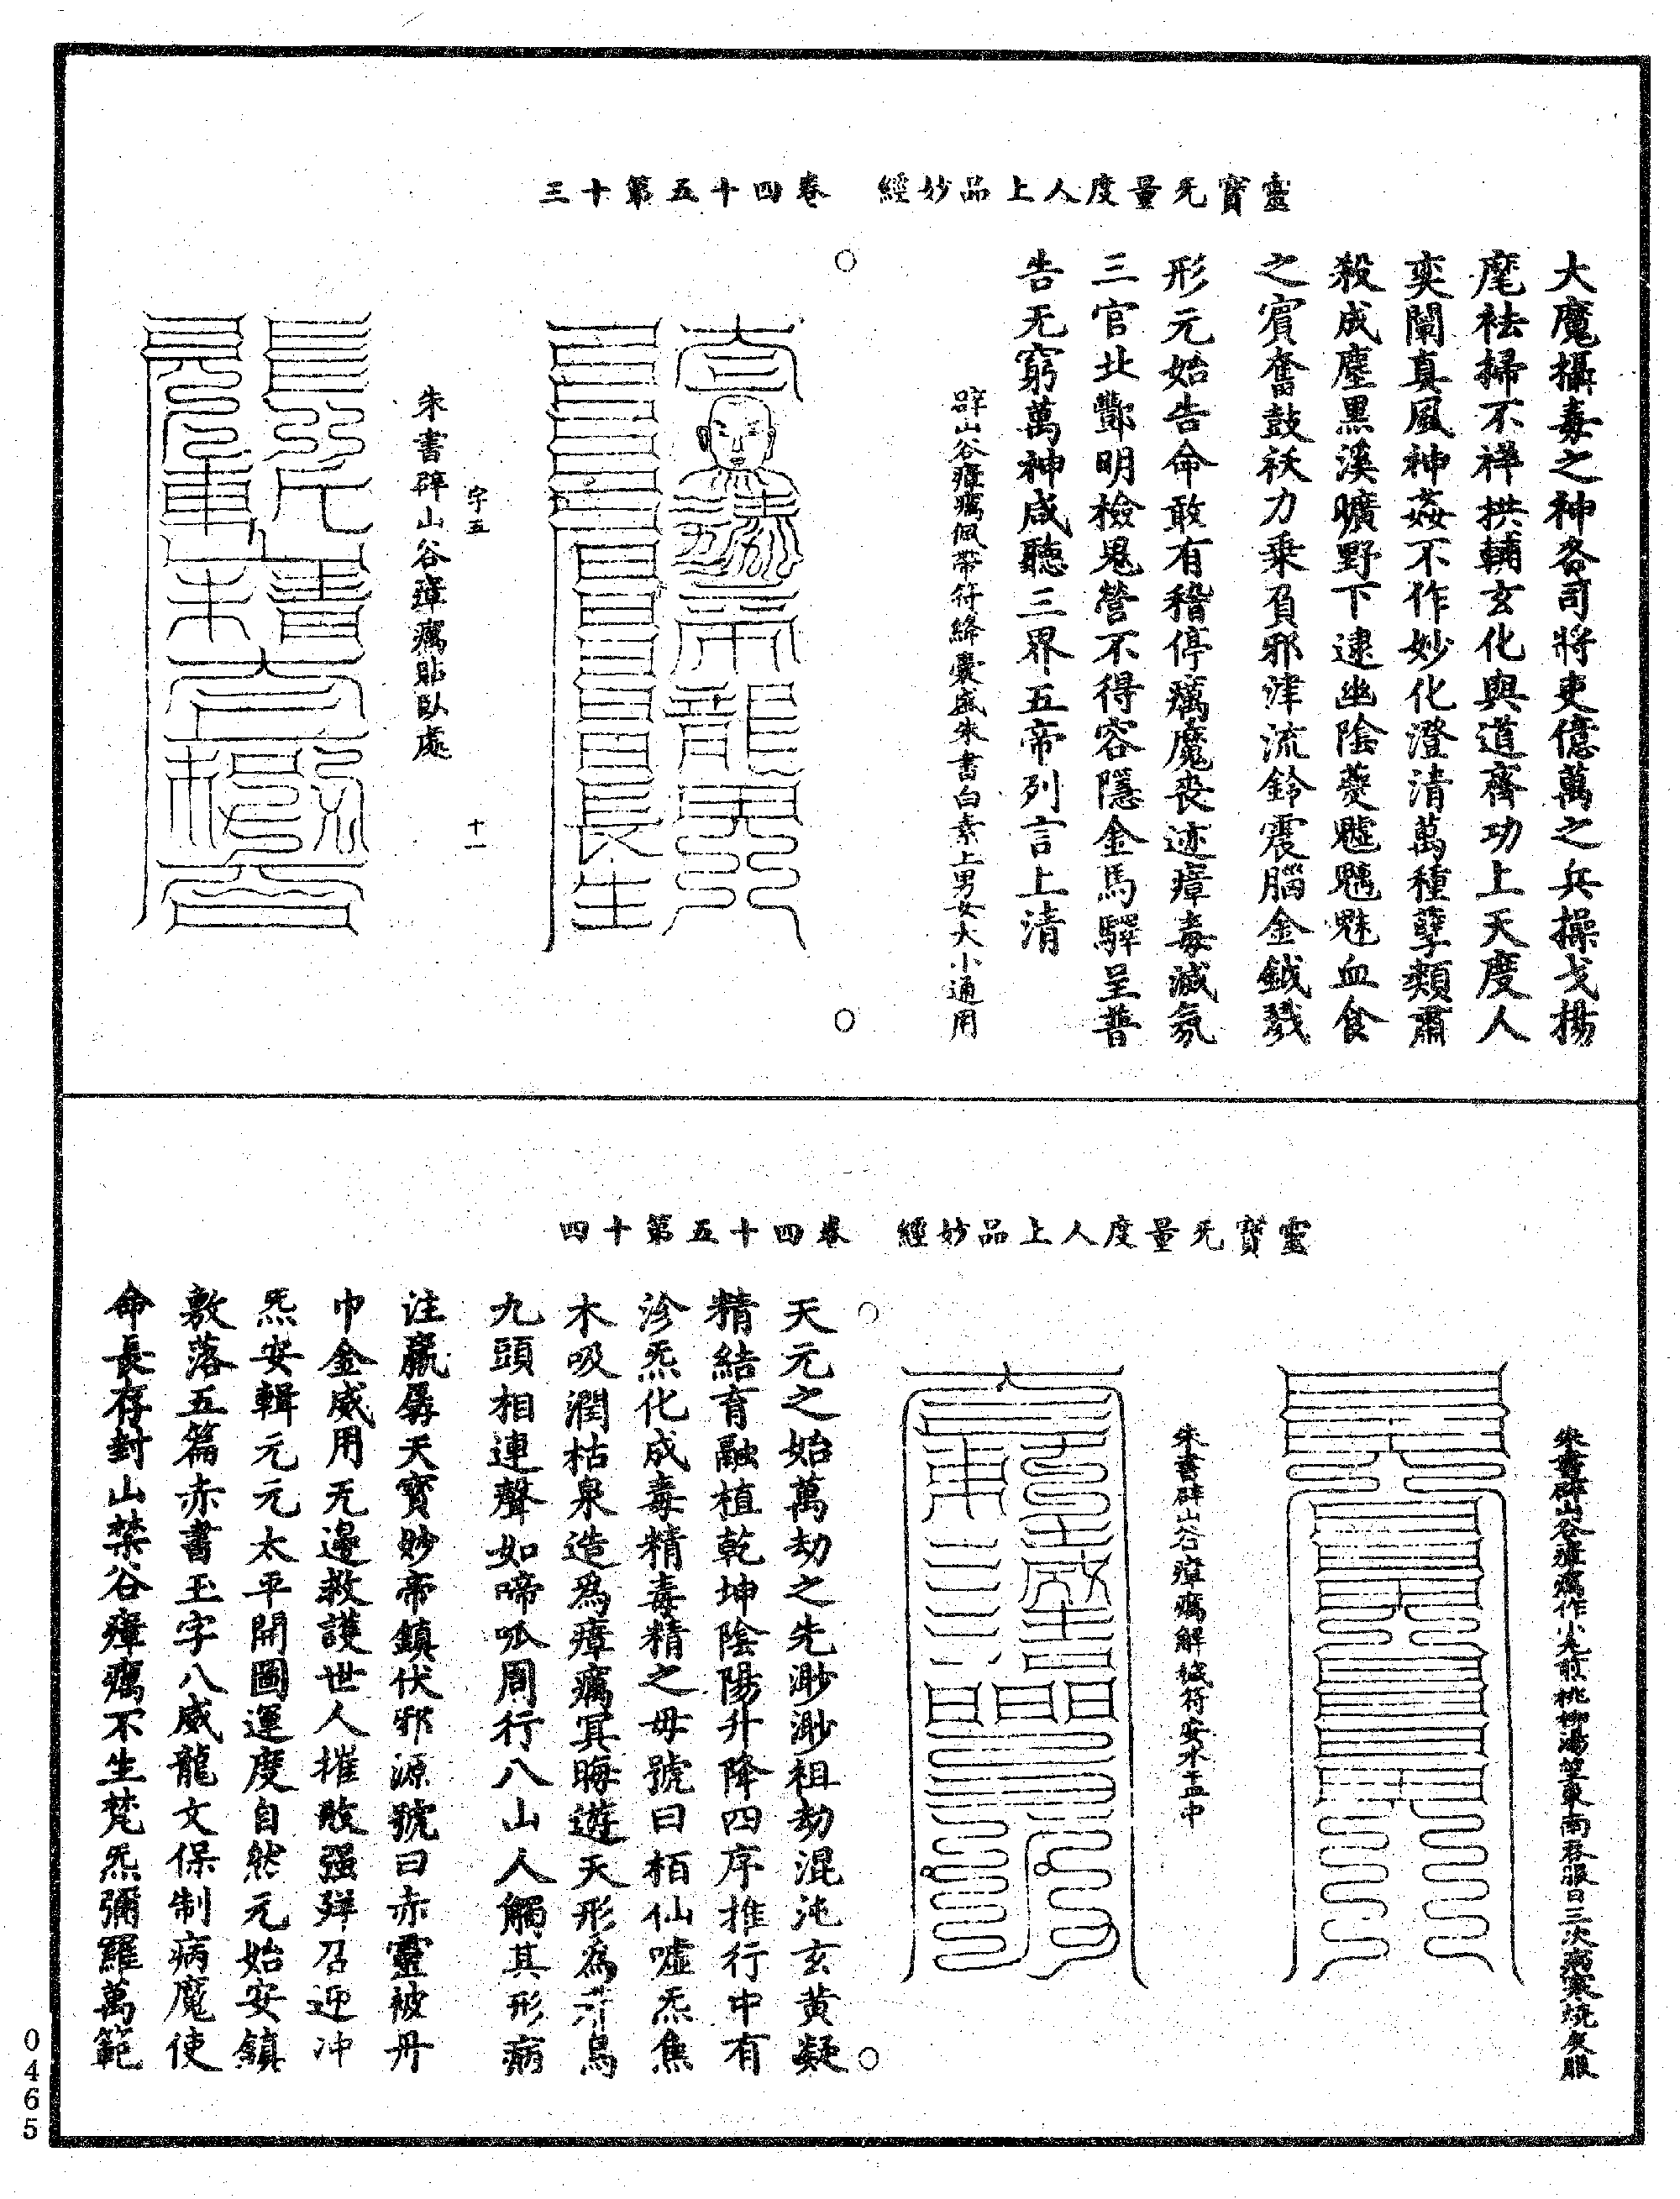 靈寶无量度人上品妙經 卷四十五第十三
大魔攝毒之神各司將吏億萬之兵操戈揚
麾祛掃不祥拱輔玄化與道齊功上天度人
奕闡真風神姦不作妙化澄清萬種孽類肅
殺成塵黑溪曠野下逮幽陰夔魖魑魅血食
之賓奮鼓祅力乘負邪津流鈴震腦金鉞戮
形元始告命敢有稽停癘魔喪迹瘴毒滅氛
三官北酆明檢鬼營不得容隱金馬驛呈普
告无窮萬神咸聽三界五帝列言上清
辟山谷瘴癘佩帶符絳囊盛朱書白素上男女大小通用
字五 十一
朱書辟山谷瘴癘貼臥處
靈寶无量度人上品妙經 卷四十五第十四
朱書辟山谷瘴癘作小丸煎桃柳湯望東南吞服日三次病寒燒灰服
朱書辟山谷瘴癘解穢符安水盂中
天元之始萬劫之先渺渺祖劫混沌玄黄凝
精結育融植乾坤陰陽升降四序推行中有
沴炁化成毒精毒精之母號曰栢仙噓炁焦
木吸潤枯泉造為瘴癘冥晦遊天形為鳥
九頭相連聲如啼呱周行八山人觸其形病
注羸孱天寶妙帝鎮伏邪源號曰赤靈被丹
巾金威用无邊救護世人摧敗强群召迎冲
炁安輯元元太平開圖運度自然元始安鎮
敷落五篇赤書玉字八威龍文保制病魔使
命長存封山禁谷瘴癘不生梵炁彌羅萬範
0465